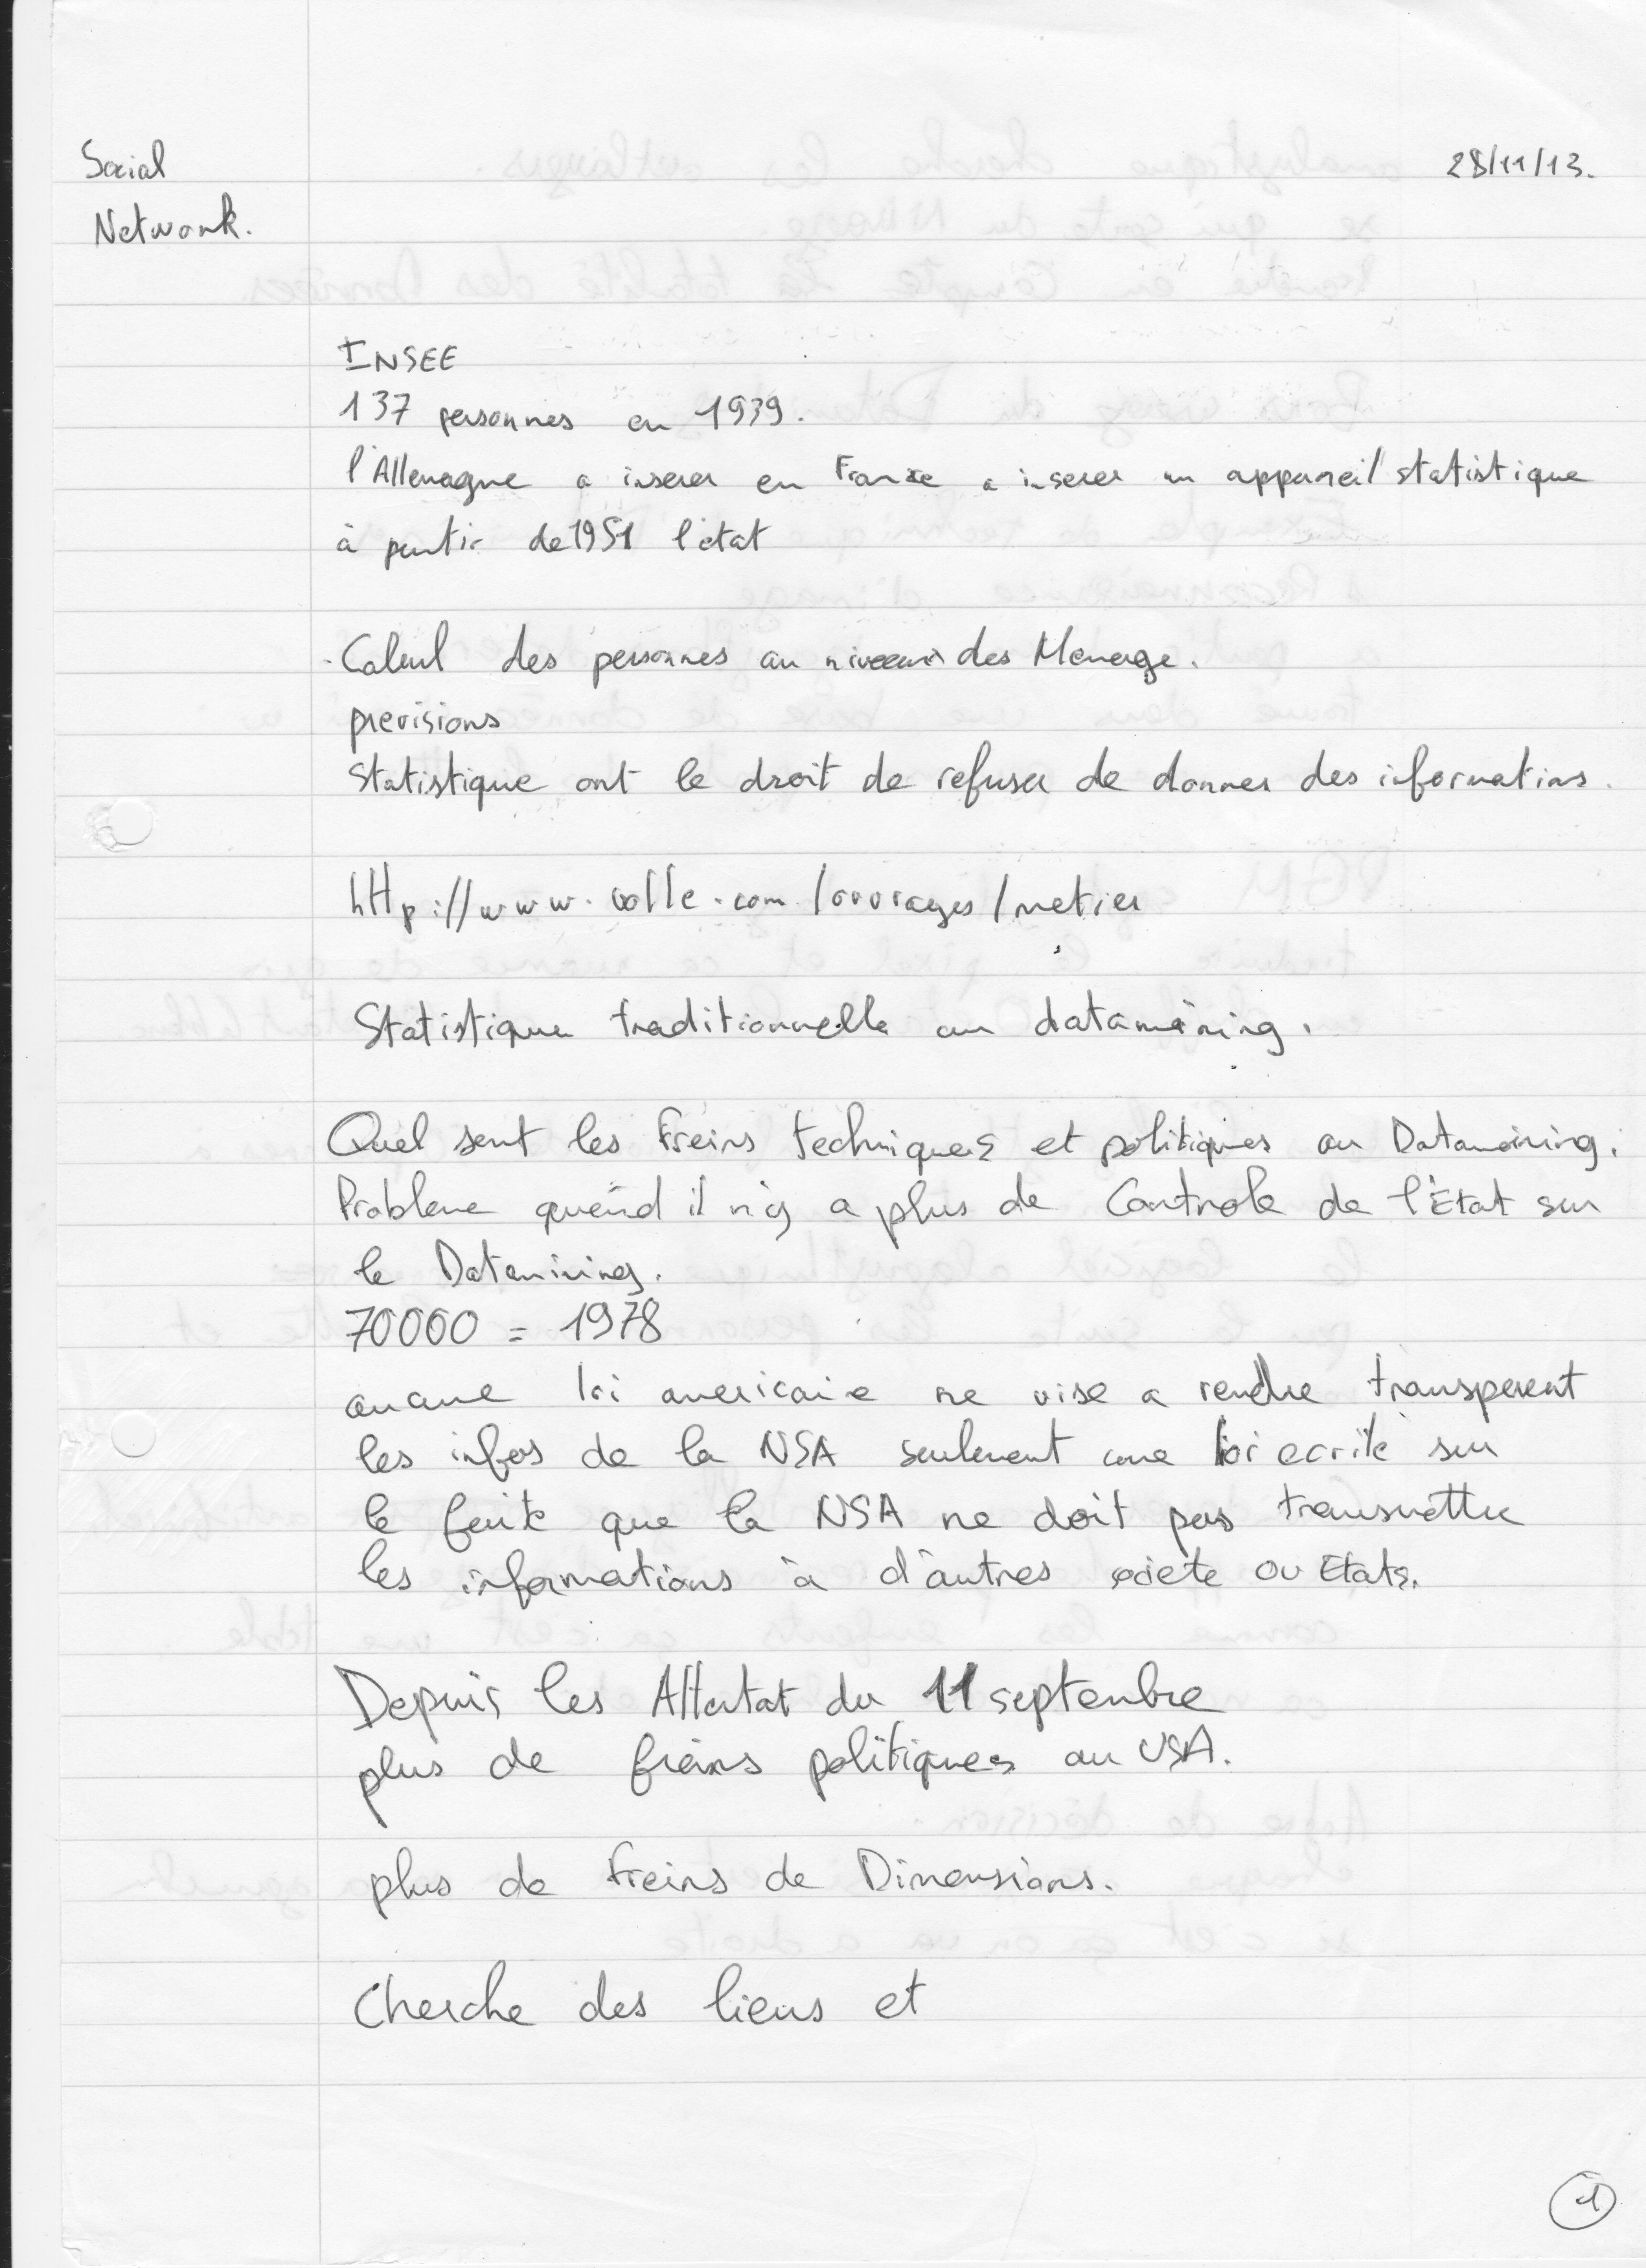 Social
Network.
28/11/13.
INSEE
137 personnes en 1939.
l'Allemagne a inserer en France a inserer un appareil statistique
à partir de 1951 l'état
- Calcul des personnes au niveau des Menage.
previsions
Statistique ont le droit de refuser de donner des informations.
http://www.volle.com/ouvrages/metier
Statistique traditionnelle au datamining.
Quel sont les freins techniques et politiques au Datamining.
Probleme quand il n'y a plus de Controle de l'État sur
le Datamining.
70000 = 1978
aucune loi americaine ne vise a rendre transparent
les infos de la NSA seulement une loi ecrite sur
le faite que la NSA ne doit pas transmettre
les informations à d'autres societe ou Etats.
Depuis les Attentat du 11 septembre
plus de freins politiques au USA.
plus de freins de Dimensions.
Cherche des liens et
1